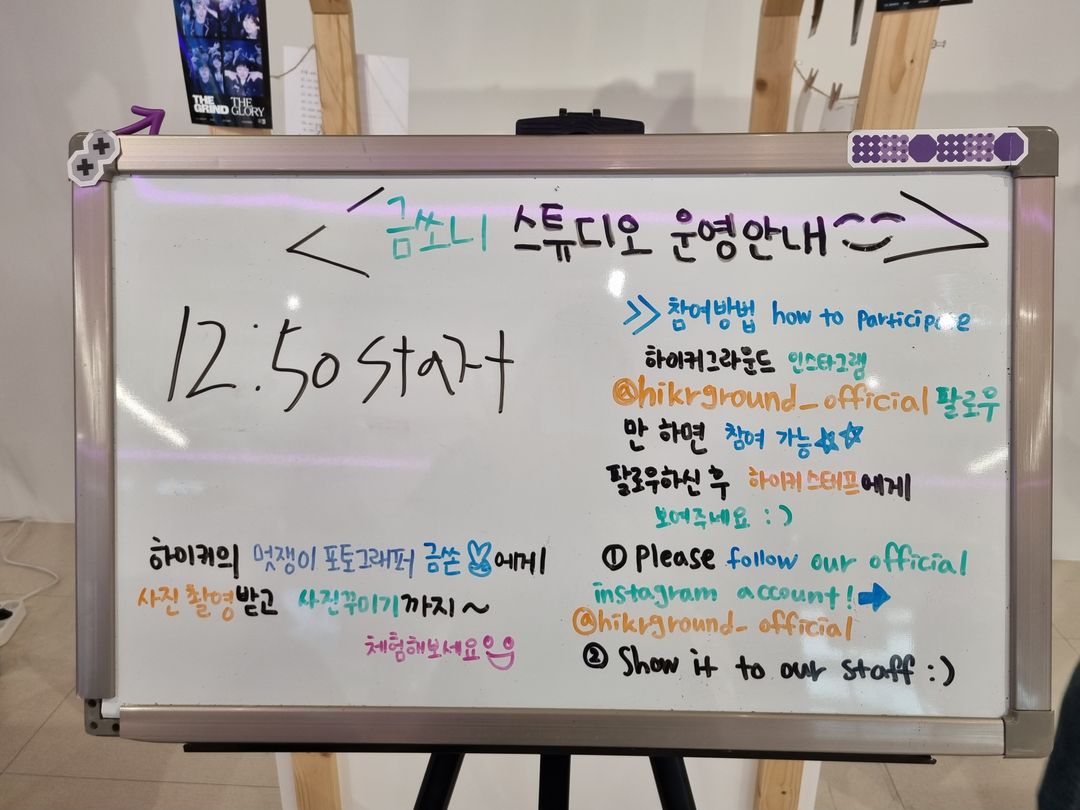 THE GRIND THE GLORY
<금쏘니 스튜디오 운영안내>
12:50 start
>> 참여방법 how to participate
하이커그라운드 인스타그램
@hikrground_official 팔로우
만 하면 참여 가능☆☆
팔로우하신 후 하이커스태프에게
보여주세요 :)
① Please follow our official
instagram account!➡
@hikrground_official
② Show it to our staff :)
하이커의 멋쟁이 포토그래퍼 금쏜에게
사진 촬영받고 사진꾸미기까지~
체험해보세요